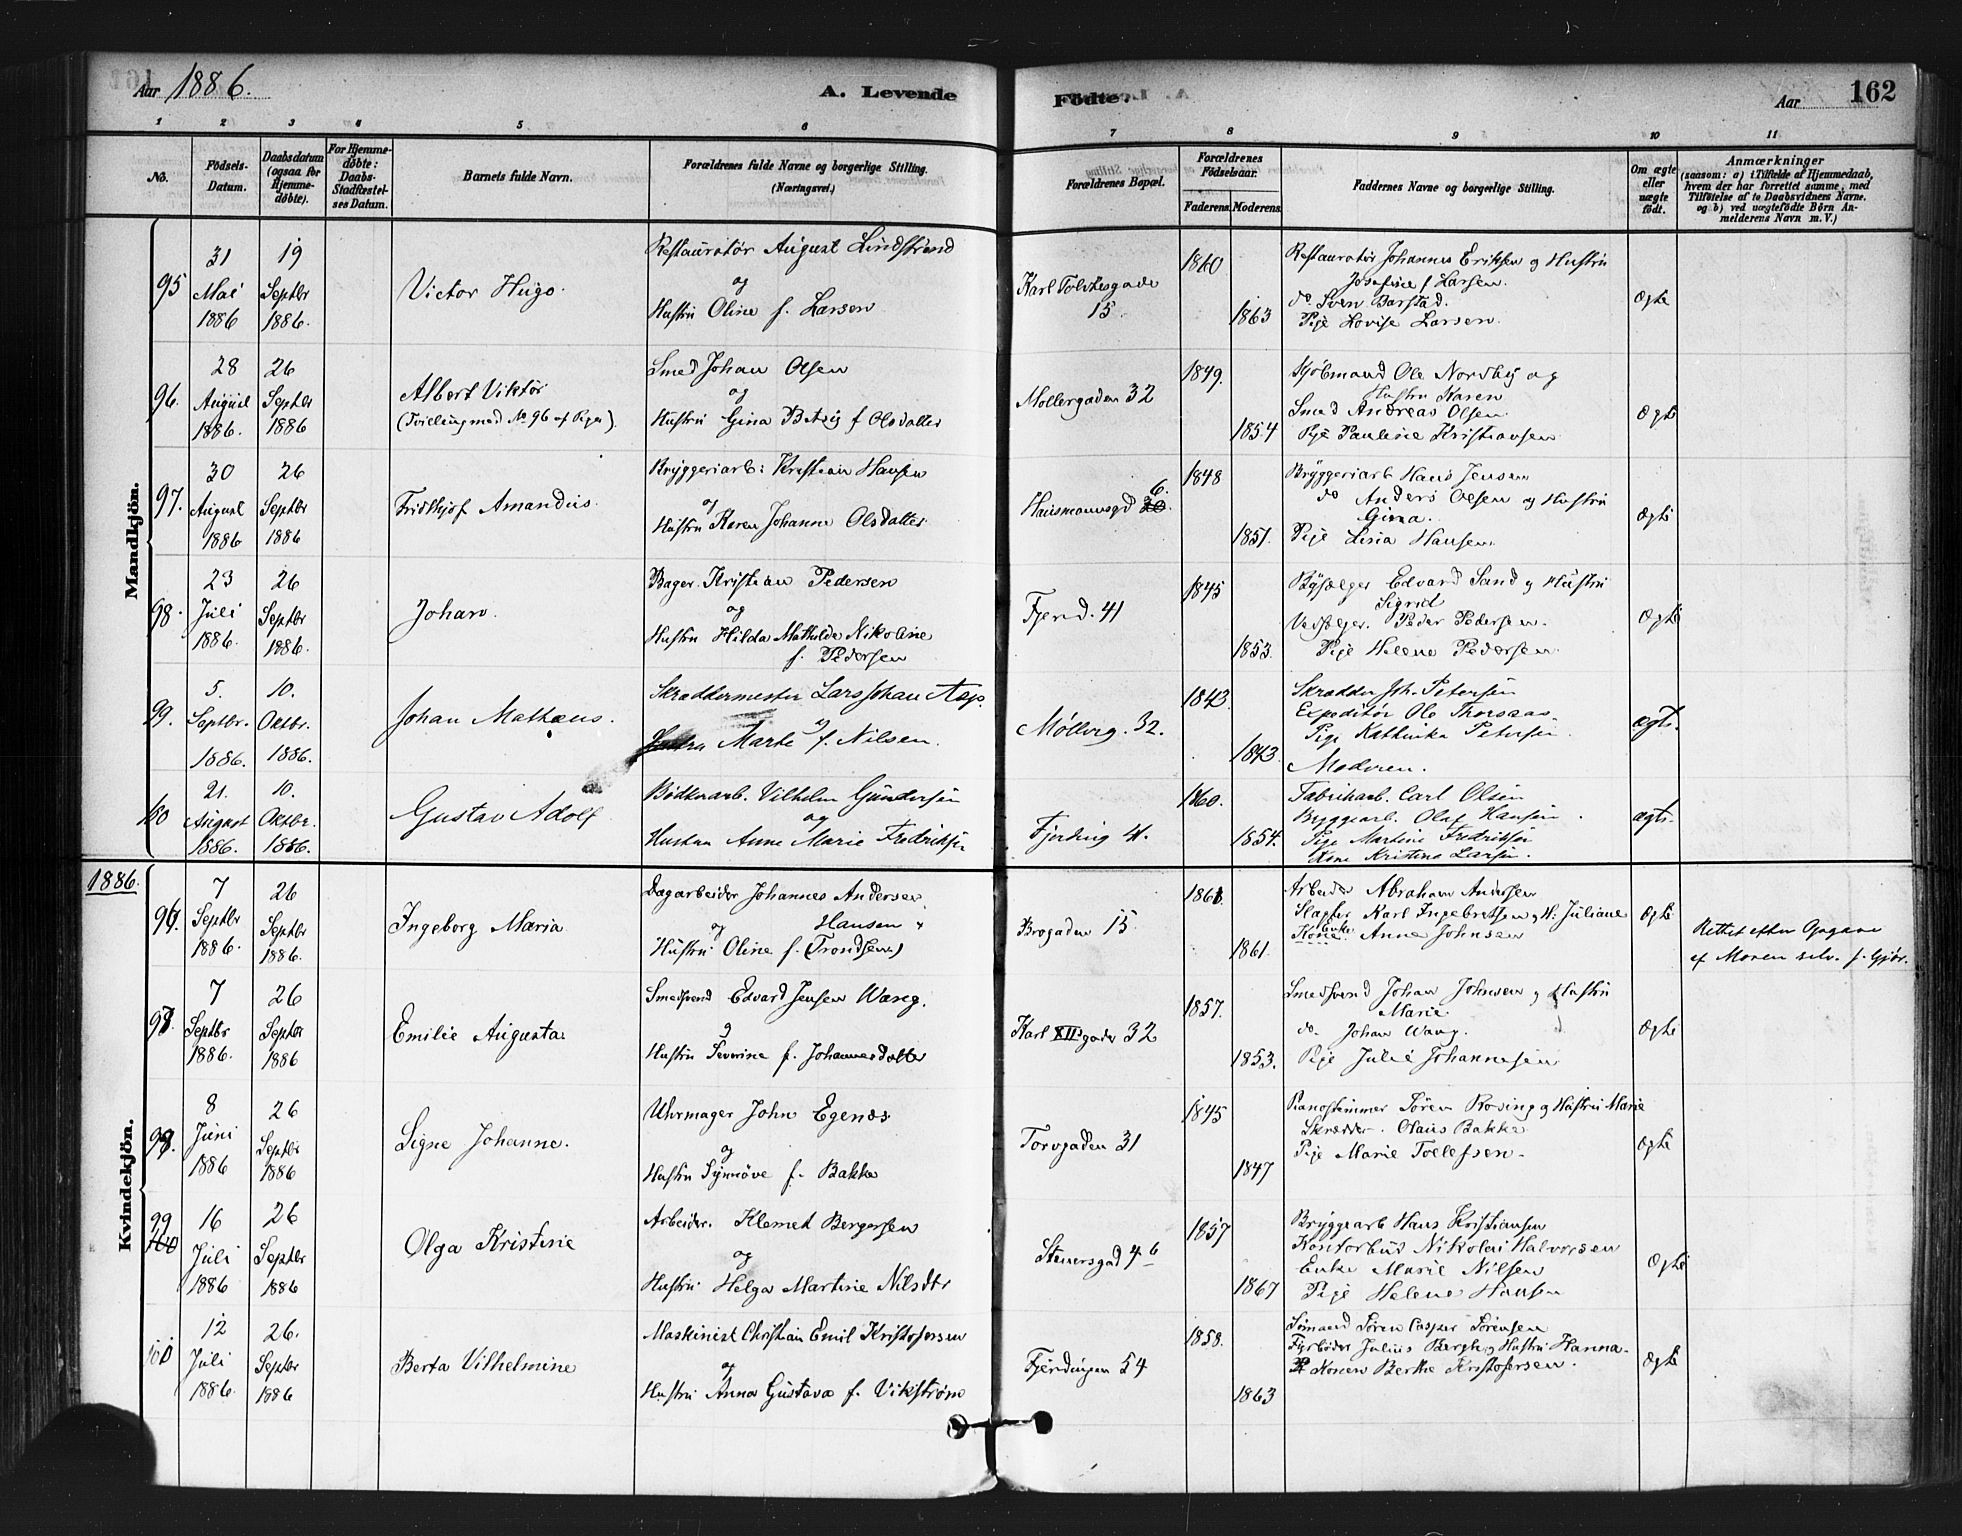 Aar 1886.
A. Levende
Födte.
Aar
162
1 2 3 4 5 6
7 8 9 10 11
No.
Födsels-Datum.
Daabsdatum (ogsaa for Hjemmedöbte).
For Hjemmedøbte: Daabs-Stadfæstelses Datum.
Barnets fulde Navn.
Forældrenes fulde Navne og borgerlige Stilling. (Næringsvei.)
Forældrenes Bopæl.
Forældrenes Födselsaar.
Faderens.
Moderens.
Faddernes Navne og borgerlige Stilling.
Om ægte eller uægte födt.
Anmærkninger
(saasom: a) i Tilfælde af Hjemmedaab, hvem der har forrettet samme, med Tilföielse af to Daabsvidners Navne, og b) ved uægtefödte Börn Anmelderens Navn m. V.)
Mandkjön.
95 31 Mai 1886 19 Septbr 1886.
Victor Hugo.
Restauratør August Lindstrand
og
Hustru Oline f. Larsen
15.
1860
1863
Restauratør Johannes Eriksen og Hustru
Josefine f Larsen.
do Sven Barstad.
Pige Lovise Larsen.
Ægte
96. 28 August 1886. 26 Septbr 1886
Albert Viktor
(Tvilling med No 96 af Piger).
Smed Johan Olsen
og
Hustru Gina f Olsdatter
Møllergaden 32
1849.
1854
Kjöbmand Ole Nordby og
Hustru Karen
Smed Andreas Olsen
Pige Pauline Kristiansen
Ægte
97. 30 August 1886 26 Septbr 1886
Fridthjof Amandus.
Bryggeriarb: Kristian Hansen
og
Hustru Karen Johanne Olsdatter
Hausmannsgd 6.
1848
1851.
Bryggeriarb Hans Jensen
do Anders Olsen og Hustru
Gina.
Pige Lina Hansen.
Ægte
98. 23 Juli 1886. 26 Septbr 1886.
Johan.
Bager. Kristian Pedersen
og
Hustru Hilda Mathilde Nikoline
f. Pedersen
Fjerd. 41
1845
1853.
Bysælger Edvard Sand og Hustru
Sigrid
Vedsælger. Peder Pedersen.
Pige Helene Pedersen
Ægte
99. 5. Septbr. 1886. 10. Oktbr. 1886.
Johan Mathæus.
Skræddermester Lars Johan Asp.
og
Hustru Marte f. Nilsen.
Møllerg. 32.
1843
1843.
Skrædder Joh. Petersen
Expeditör Ole Thorsaas
Pige Kathinka Petersen
Moderen.
ægte.
100 21. August 1886. 10. Oktbr. 1886.
Gustav Adolf
Bødkerarb. Vilhelm Gundersen
og
Hustru Anne Marie Fredriksen
Fjerding 41.
1860.
1854.
Fabrikarb. Carl Olsen
Bryggearb. Olaf Hansen
Pige Martine Fredriksen
Kone Kristine Larsen.
ægte.
1886.
Kvindekjön.
96. 7 Septbr 1886. 26 Septbr 1886.
Ingeborg Maria
Dagarbeider Johannes Andersen
og Hansen
Hustru Oline f. (Trondsen)
Brogaden 15
1861.
Arbeider Abraham Andersen
Slagter Karl Ingebretsen og H. Juliane
Enke Anne Johnsen
Ægte
Rettet efter Opgave
af Moren selv.
97. 7 Septbr 1886. 26 Septbr 1886
Emilie Augusta
Smedsvend Edvard Jensen Wang.
og
Hustru Severine f. Johannesdatter
Karl XIIsgade 32
1857.
1853.
Smedsvend Johan Johnsen og Hustru
Marie.
do. Johan Wang.
Pige Julie Johannesen
Ægte
98. 8 Juni 1886 26 Septbr 1886
Signe Johanne.
Uhrmager John Egenæs
og
Hustru Synnöve f. Bakke
Torvgaden 31
1845
1847
Pianostemmer Sören Rosing og Hustru Marie
Skrædder. Olaus Bakke
Pige Marie Tollefsen.
Ægte
99 16 Juli 1886 26 Septbr 1886
Olga Kristine
Arbeider. Klemet Bergersen
og
Hustru Helga Martine Nilsdtr
Stenersgad 4 b
1857
1867
Bryggearb Hans Kristiansen
Kontorbud Nikolai Halvorsen
Enke Marie Nilsen
Pige Helene Hansen
Ægte
100 12 Juli 1886. 26. Septbr 1886
Berta Vilhelmine
Maskinist Christian Emil Kristofersen
og
Hustru Anna Gustava f. Vikström
Fjerdingen 54
1858.
1863
Sömand Sören Casper Sörensen
Fyrböder Julius Bergh og Hustru Hanna.
Konen Berthe Kristofersen.
Ægte